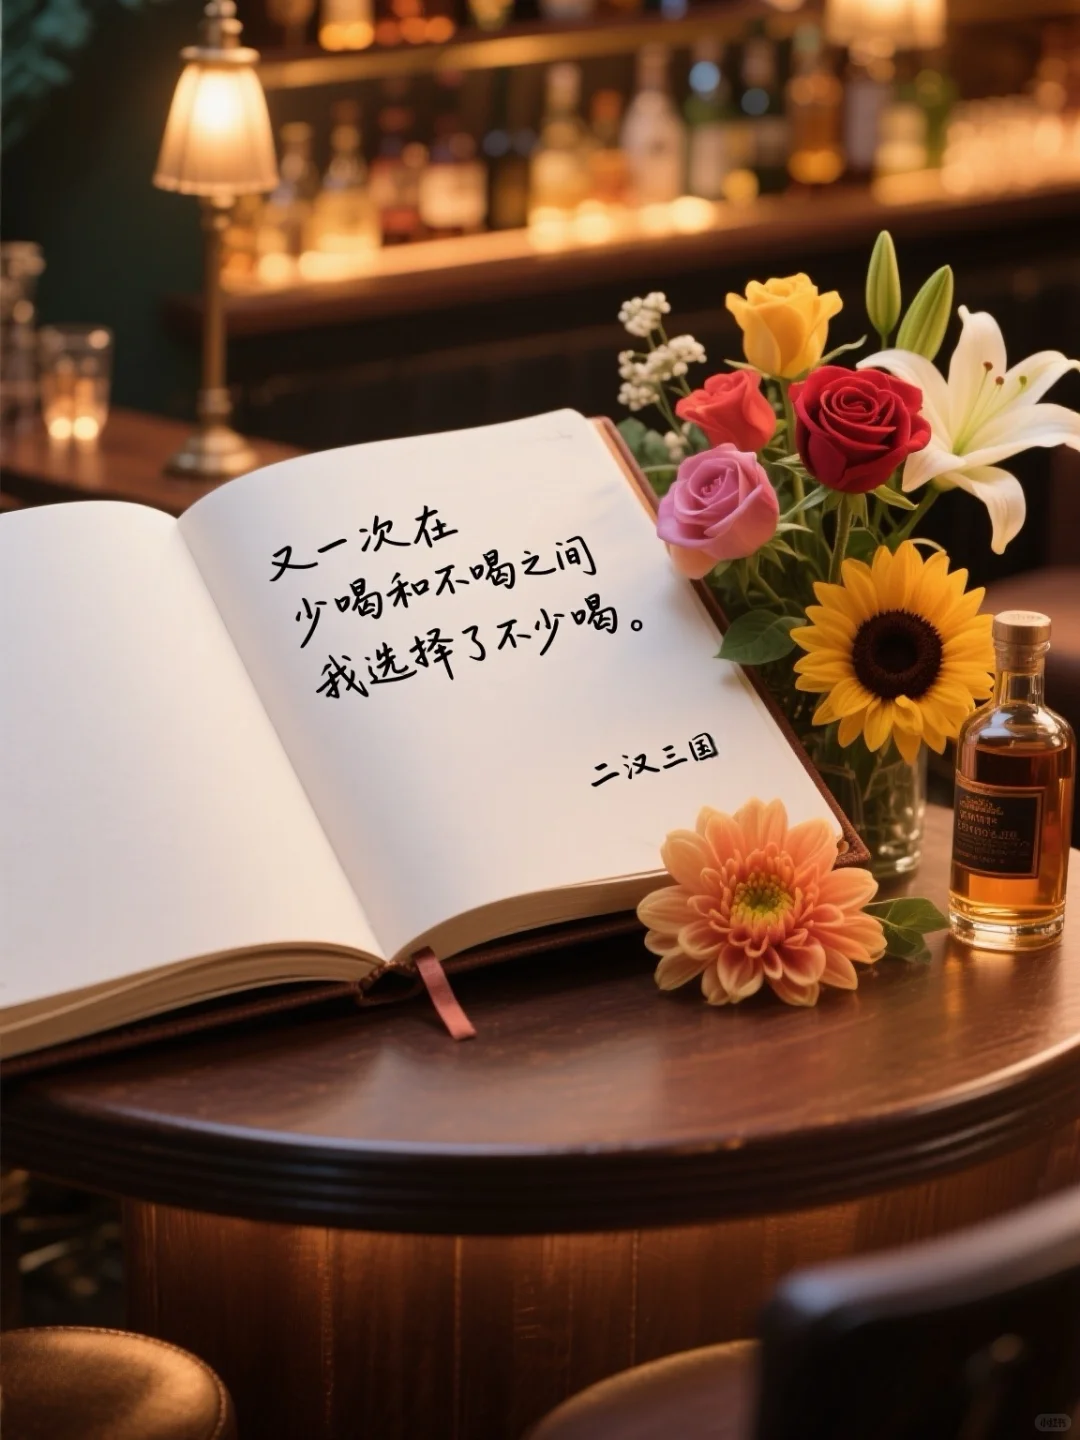 又一次在
少喝和不喝之间
我选择了不少喝。
二汉三国
小红书